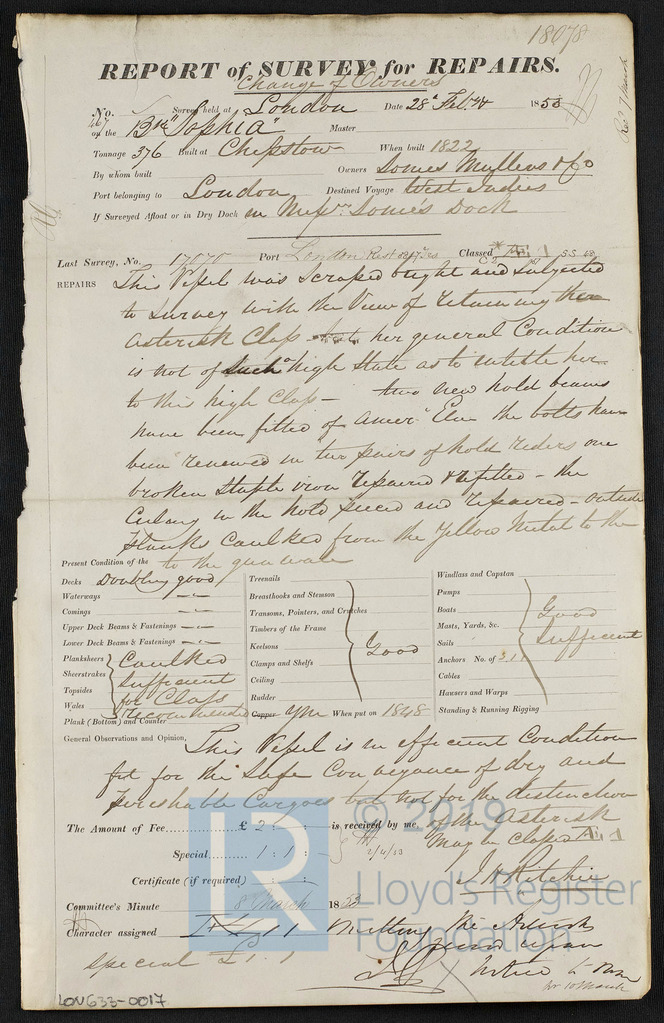 18078
REPORT of SURVEY for REPAIRS.
Change of Owners
No. 467 Survey held at London Date 28 Feby 1853
on the Bne "Sophia" Master
Tonnage 376 Built at Chepstow When built 1822
By whom built Owners Somes Mullens & Co
Port belonging to London Destined Voyage West Indies
If Surveyed Afloat or in Dry Dock in Messrs Somes's Dock
Last Survey, No. 17070 Port London Classed Æ 1
REPAIRS This Vessel was scraped bright and subjected
to survey with the view of retaining
asterisk Class her general Condition
is not of such high State as to intitle her
to this high Class - two new hold beams
have been fitted of Amer. Elm the bolts have
been renewed in two pairs of hold riders one
broken staple iron repaired & refitted - the
Ceiling in the hold pieced and repaired - outside
Planks caulked from the Yellow Metal to the
to the gunwale
Present Condition of the
Decks Doubling good
Waterways -"-
Comings -"-
Upper Deck Beams & Fastenings -"-
Lower Deck Beams & Fastenings -"-
Planksheers Caulked
Sheerstrakes Sufficient
Topsides for Class
Wales recommended
Plank (Bottom) and Counter
Treenails
Breasthooks and Stemson
Transoms, Pointers, and Crutches
Timbers of the Frame
Keelsons Good
Clamps and Shelfs
Ceiling
Rudder
Copper YM When put on 1848
Windlass and Capstan
Pumps
Boats Good
Masts, Yards, &c.
Sails Sufficient
Anchors No. of 3.1.1
Cables
Hawsers and Warps
Standing & Running Rigging
General Observations and Opinion, This Vessel is in efficient Condition
fit for the Safe Conveyance of dry and
perishable Cargoes but not for the distinction
of the Asterisk
The Amount of Fee £ 2 : : is received by me, may be Classed Æ 1
Special 1 : 1 : 2/4/53
Certificate (if required) : : J H Ritchie
Committee's Minute 8 March 1853
Character assigned
special £1.1
Notice to
LON633-0017
© 2019
LR
Lloyd's Register
Foundation